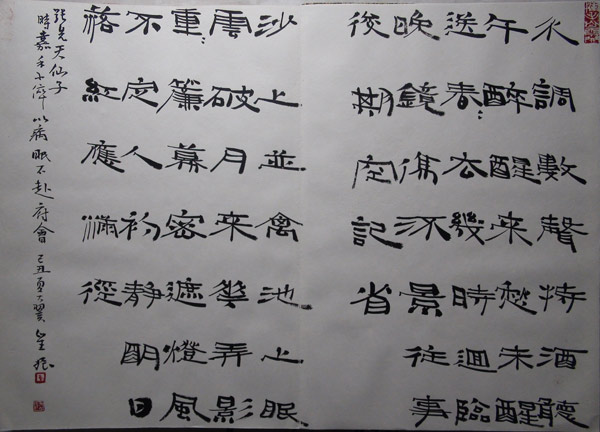 水調數聲持酒聽
午醉醒來愁未醒
送春〻去幾時迴臨
晚鏡傷流景往事
後期空記省
沙上並禽池上眠
雲破月來花弄影
重〻簾幕密遮燈風
不定人初靜明日
落紅應滿徑
張先天仙子
時嘉禾小倅以病眠不赴府會 己丑夏大翼